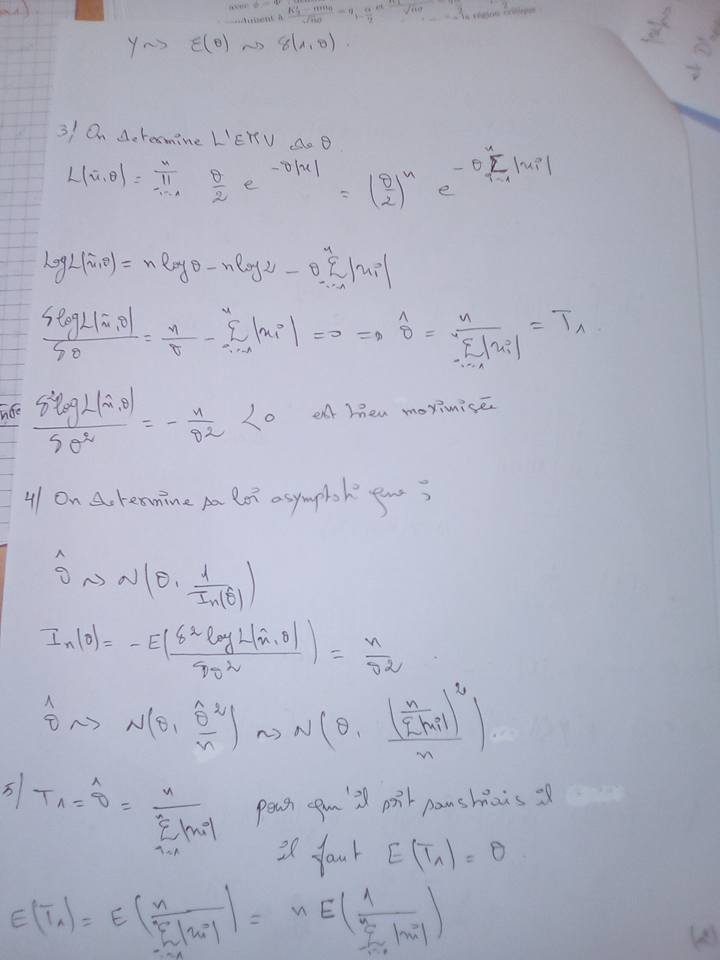 Y ~> E(θ) ~> γ(1,θ).
3/ On determine L'EMV de θ
L(x̃,θ) = ∏ᵢ₌₁ⁿ θ/2 e^(-θ|x|) = (θ/2)ⁿ e^(-θ Σᵢ₌₁ⁿ |xi|)
Log L(x̃,θ) = n log θ - n log 2 - θ Σᵢ₌₁ⁿ |xi|
δ log L(x̃,θ)/δθ = n/θ - Σᵢ₌₁ⁿ |xi| = 0 => θ̂ = n/Σᵢ₌₁ⁿ |xi| = T₁.
δ² log L(x̃,θ)/δθ² = - n/θ² < 0 est bien maximisée
4/ On determine sa loi asymptotique ;
θ̂ ~> N(θ, 1/In(θ̂))
In(θ) = - E(δ² log L(x̃,θ)/δθ²) = n/θ².
θ̂ ~> N(θ, θ̂²/n) ~> N(θ, (n/Σ|xi|)²/n)
5/ T₁ = θ̂ = n/Σᵢ₌₁ⁿ |xi| pour qu'il soit sans biais il
il faut E(T₁) = θ
E(T₁) = E(n/Σᵢ₌₁ⁿ |xi|) = n E(1/Σᵢ₌₁ⁿ |xi|)